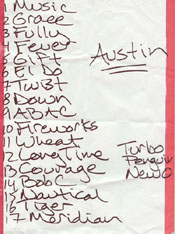 1 Music
2 Grace
3 Fully
4 Fever
5 Gift
6 El Do
7 Twist
8 Down
9 ABAC
10 Fireworks
11 Wheat
12 Long Time
13 Courage
14 Bob C
15 Nautical
16 Tiger
17 Meridian
Austin
Turbo
Penguin
New O